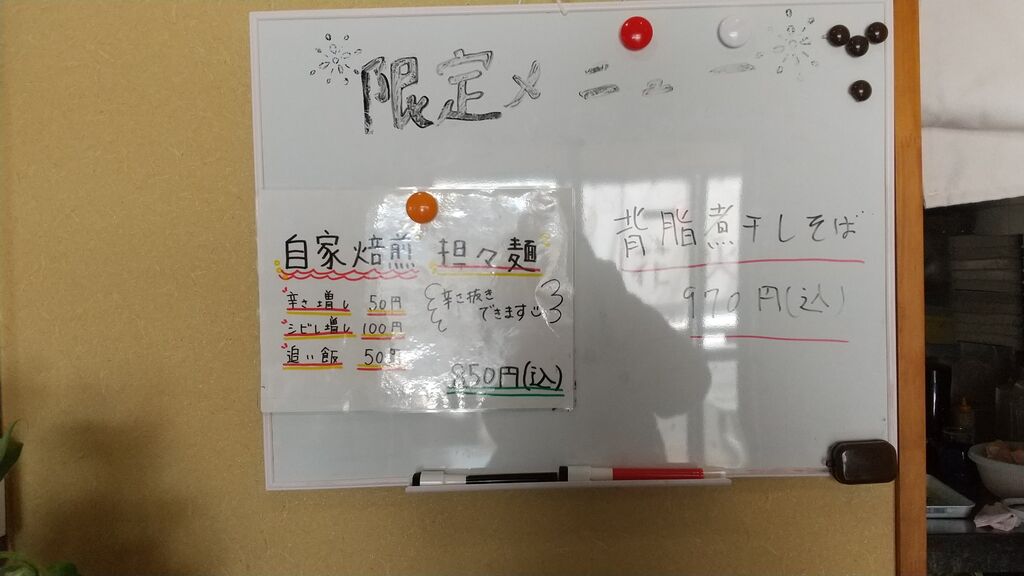 限定メニュー
自家焙煎 担々麺
辛さ増し 50円
シビレ増し 100円
追い飯 50円
辛さ抜き
できます
850円(込)
背脂煮干しそば
970円(込)